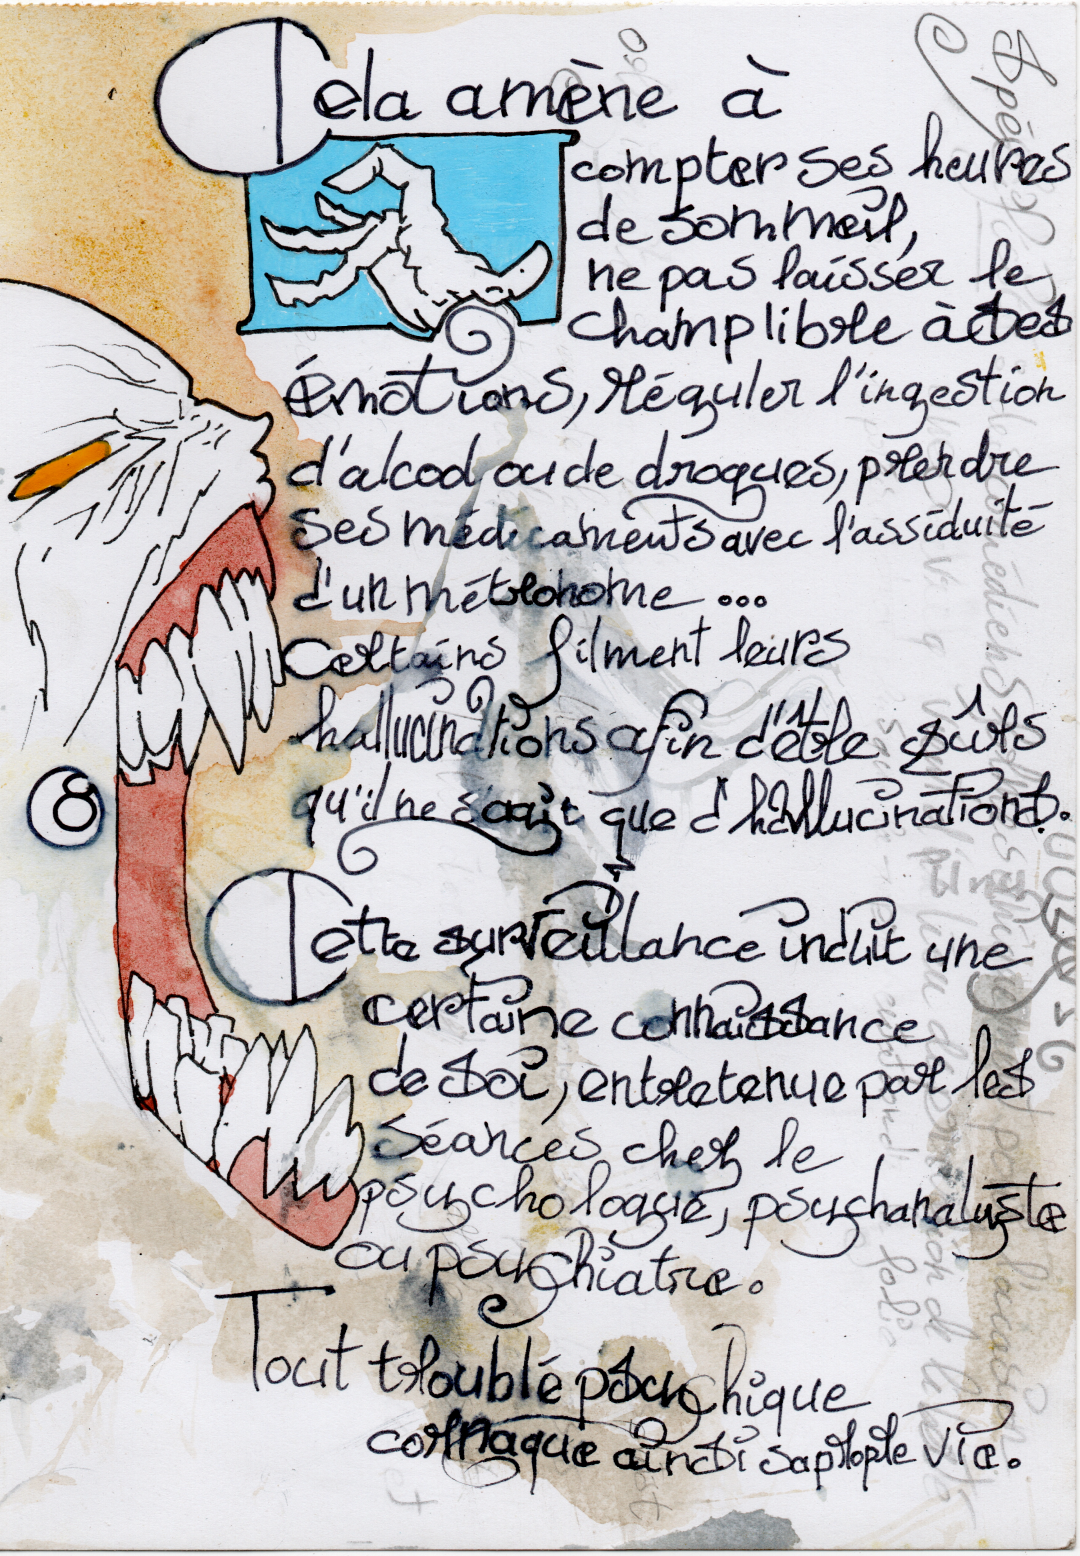 Cela amène à
compter ses heures
de sommeil,
ne pas laisser le
champ libre à ses
émotions, réguler l'ingestion
d'alcool ou de drogues, prendre
ses médicaments avec l'assiduité
d'un métronome ...
Certains filment leurs
hallucinations afin d'être sûrs
qu'il ne s'agit que d'hallucinations.
8
Cette surveillance induit une
certaine connaissance
de soi, entretenue par les
séances chez le
psychologue, psychanalyste
ou psychiatre.
Tout troublé psychique
cornaque ainsi sa propre vie.